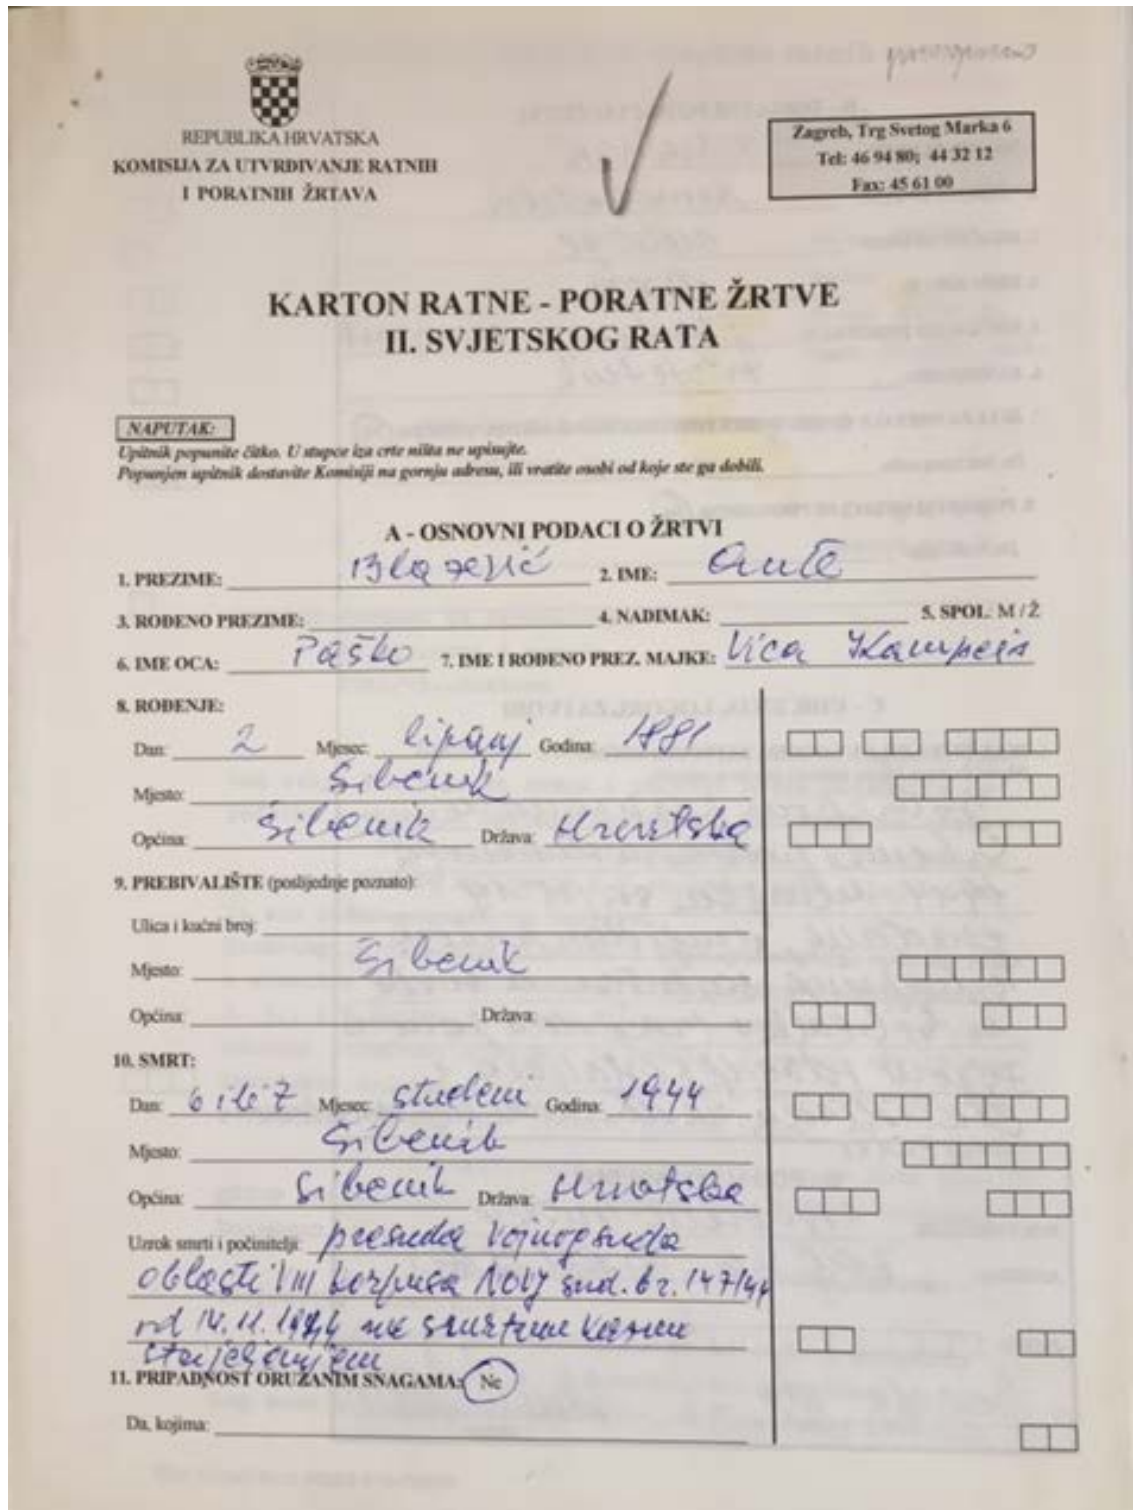 REPUBLIKA HRVATSKA
KOMISIJA ZA UTVRĐIVANJE RATNIH
I PORATNIH ŽRTAVA
Zagreb, Trg Svetog Marka 6
Tel: 46 94 80; 44 32 12
Fax: 45 61 00
KARTON RATNE - PORATNE ŽRTVE
II. SVJETSKOG RATA
NAPUTAK:
Upitnik popunite čitko. U stupce iza crte ništa ne upisujte.
Popunjen upitnik dostavite Komisiji na gornju adresu, ili vratite osobi od koje ste ga dobili.
A - OSNOVNI PODACI O ŽRTVI
1. PREZIME: Blažević 2. IME: Ante
3. ROĐENO PREZIME: 4. NADIMAK: 5. SPOL: M / Ž
6. IME OCA: Paško 7. IME I ROĐENO PREZ. MAJKE: Vica
8. ROĐENJE:
Dan: 2 Mjesec: lipanj Godina: 1881
Mjesto: Šibenik
Općina: Šibenik Država: Hrvatska
9. PREBIVALIŠTE (posljednje poznato):
Ulica i kućni broj:
Mjesto: Šibenik
Općina: Država:
10. SMRT:
Dan: 6 ili 7 Mjesec: studeni Godina: 1944
Mjesto: Šibenik
Općina: Šibenik Država: Hrvatska
Uzrok smrti i počinitelji: presuda Vojnog suda
oblasti VIII korpusa NOVJ sud. br. 147/44
od 14.11.1944 na smrtnu kaznu
strijeljanjem
11. PRIPADNOST ORUŽANIM SNAGAMA: Ne
Da, kojima: